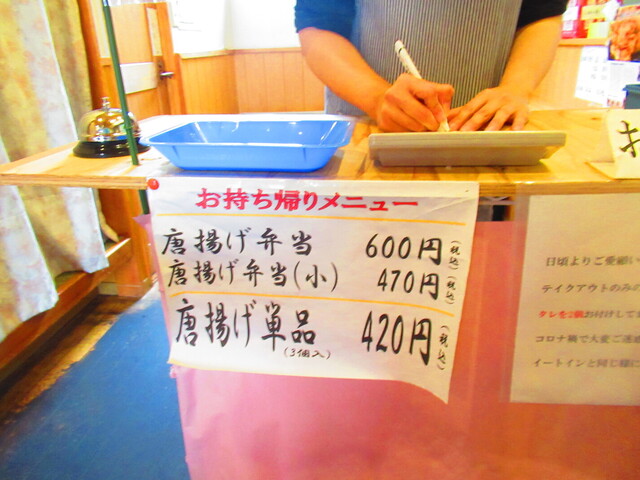 お持ち帰りメニュー
唐揚げ弁当 600円(税込)
唐揚げ弁当(小) 470円(税込)
唐揚げ単品 420円(税込)
(3個入)
日頃よりご愛顧い
テイクアウトのみの
タレを2個お付けして
コロナ禍で大変ご迷惑
イートインと同じ様に
お